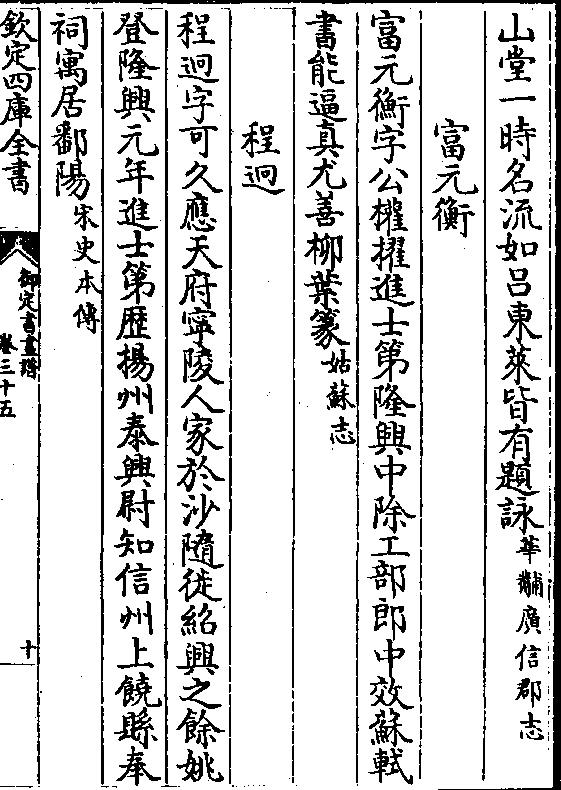 山堂一時名流如呂東萊皆有題詠華黼廣信郡志
富元衡
富元衡字公權擢進士第隆興中除工部郎中效蘇軾
書能逼真尤善柳葉篆姑蘇志
程迥
程迥字可久應天府寧陵人家於沙隨徙紹興之餘姚
登隆興元年進士第歷揚州泰興尉知信州上饒縣奉
祠寓居鄱陽宋史本傳
欽定四庫全書
御定書畫譜
卷三十五
十